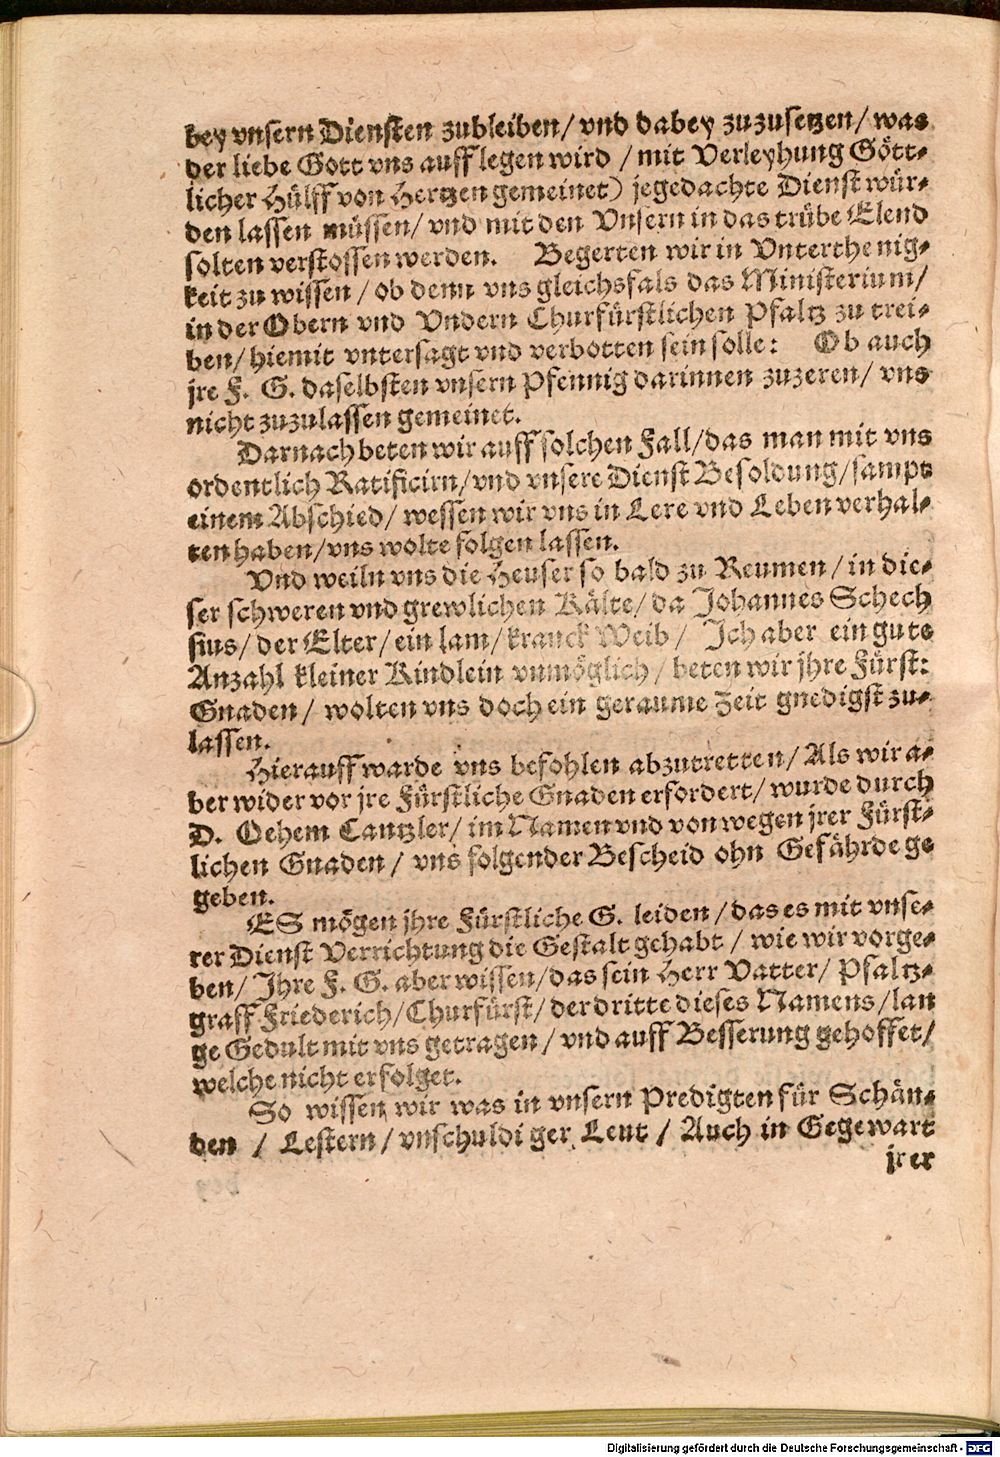 bey vnsern Diensten zubleiben/ vnd dabey zuzusetzen/ was
der liebe Gott vns auff legen wird / mit Verleyhung Gött-
licher Hülff von Hertzen gemeinet) jegedachte Dienst wür-
den lassen müssen/ vnd mit den Vnsern in das trübe Elend
solten verstossen werden. Begerten wir in Vnterthenig-
keit zu wissen / ob denn vns gleichsfals das Ministerium/
in der Obern vnd Vndern Churfürstlichen Pfaltz zu trei-
ben/ hiemit vntersagt vnd verbotten sein solle: Ob auch
jre F. G. daselbsten vnsern Pfennig darinnen zuzeren/ vns
nicht zuzulassen gemeinet.
Darnach beten wir auff solchen Fall/ das man mit vns
ordentlich Ratificirn/ vnd vnsere Dienst Besoldung/ sampt
einem Abschied/ wessen wir vns in Lere vnd Leben verhal-
ten haben/ vns wolte folgen lassen.
Vnd weiln vns die Heuser so bald zu Reumen/ in die-
ser schweren vnd grewlichen Kälte/ da Johannes Schech
sius/ der Elter/ ein lam/ kranck Weib/ Ich aber ein gute
Anzahl kleiner Kindlein vnmöglich/ beten wir jhre Fürst:
Gnaden/ wolten vns doch ein geraume Zeit gnedigst zu-
lassen.
Hierauff warde vns befohlen abzutretten/ Als wir a-
ber wider vor jre Fürstliche Gnaden erfordert/ wurde durch
D. Oehem Cantzler/ im Namen vnd von wegen jrer Fürst-
lichen Gnaden/ vns folgender Bescheid ohn Gefährde ge
geben.
ES mögen jhre Fürstliche G. leiden/ das es mit vnse-
rer Dienst Verrichtung die Gestalt gehabt / wie wir vorge-
ben/ Ihre F. G. aber wissen/ das sein Herr Vatter/ Pfaltz-
graff Friederich/ Churfürst/ der dritte dieses Namens/ lan
ge Gedult mit vns getragen/ vnd auff Besserung gehoffet/
welche nicht erfolget.
So wissen wir was in vnsern Predigten für Schän-
den / Lestern/ vnschuldiger Leut / Auch in Gegewart
jrer
Digitalisierung gefördert durch die Deutsche Forschungsgemeinschaft - DFG